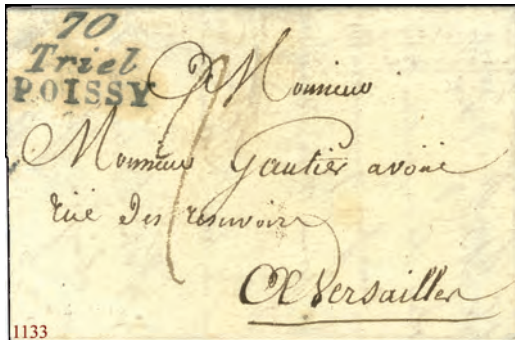 70
Triel
POISSY
A Monsieur
Monsieur Gautier avoüé
rüe des reservoirs
A Versailles
1133